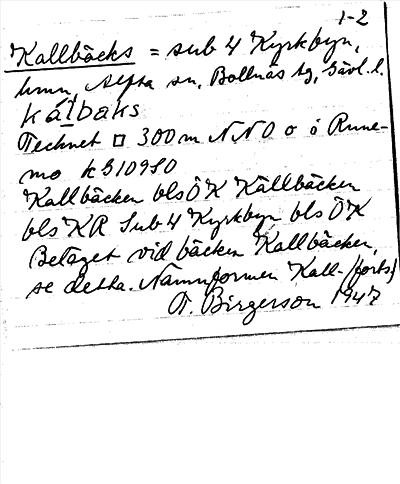 1-2
Kallbäcks = sub 4 Kyrkbyn,
hmn, Alfta sn, Bollnäs tg, Gävl. l.
kálbaks
Tecknet □ 300 m NNO o ó Rune-
mo k3109S0
Kallbäcken bls ÖK Källbäcken
bls KR Sub 4 Kyrkbyn bls ÖK
Beläget vid bäcken Kallbäcken,
se detta. Namnformen Kall- (forts)
F. Birgerson 1947